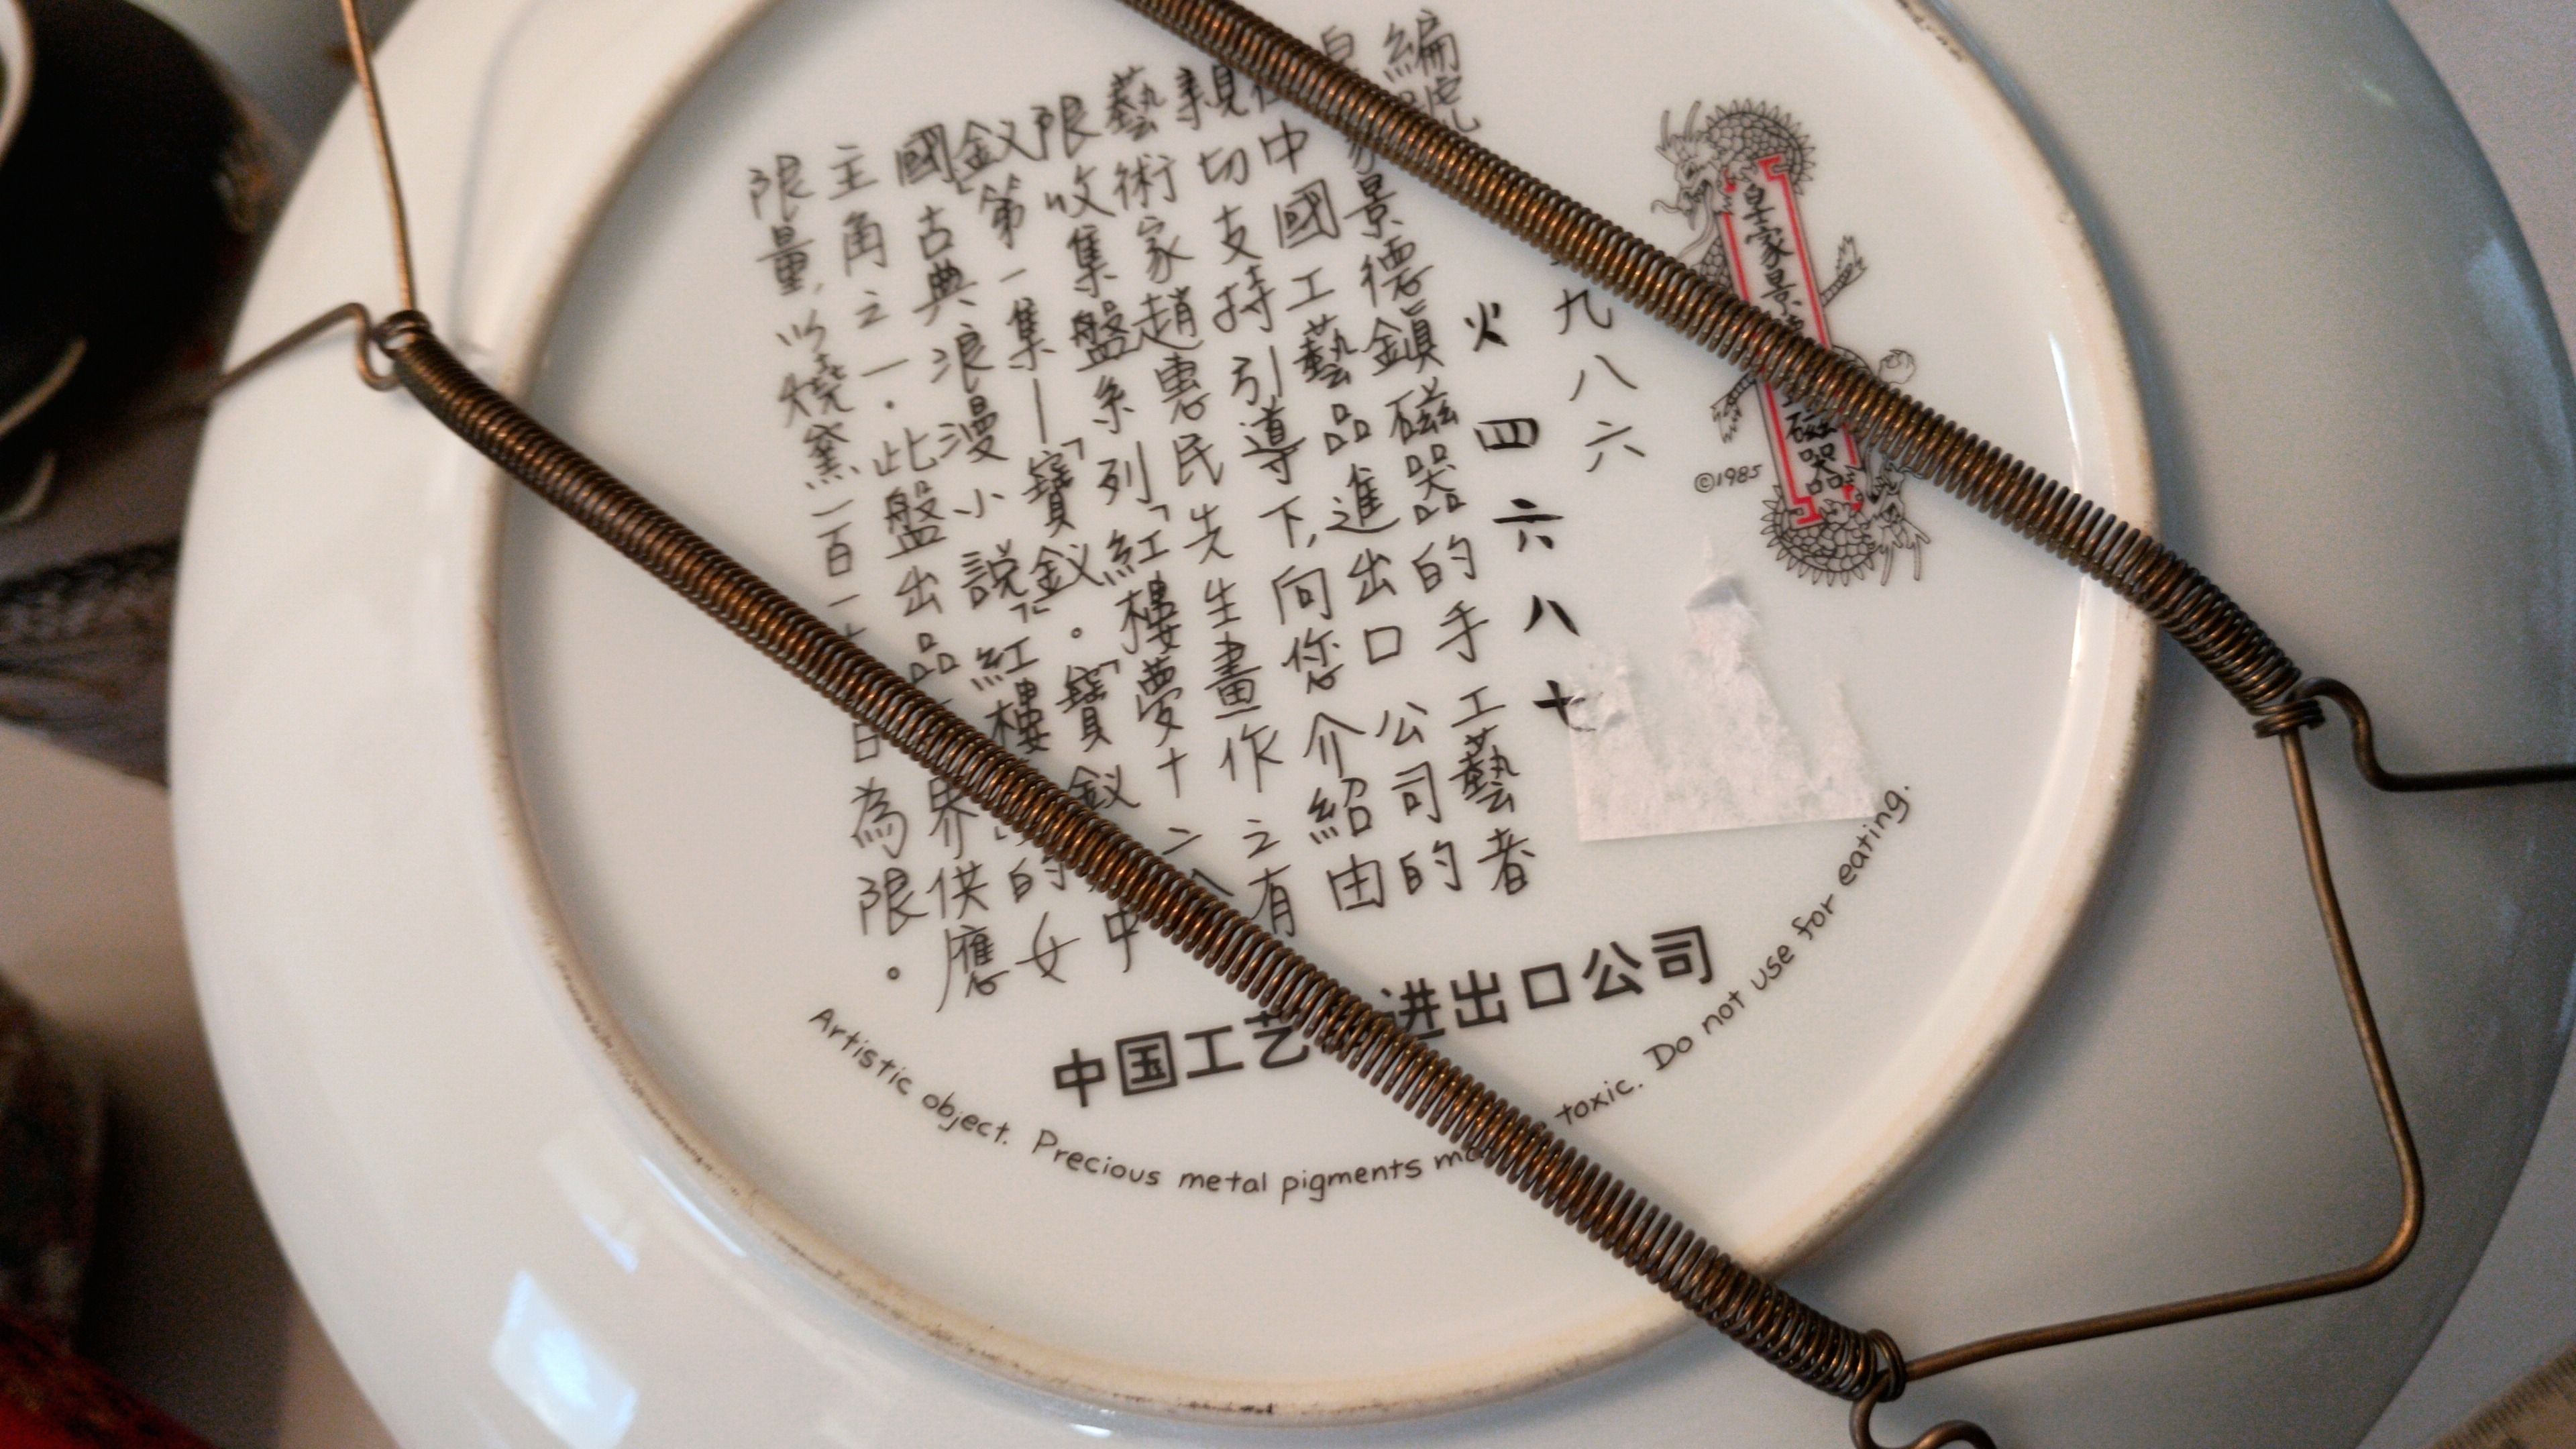 皇家景 磁器
©1985
九八六
編號 火四六八十
家景德鎮磁器的手工藝者
中國工藝品進出口公司的
親切支持引導下,向您介紹由
藝術家趙惠民先生畫作之有
限收集盤系列「紅樓夢十二
釵」第一集—「寶釵」。「寶釵 中
國古典浪漫小說「紅樓 的女
主角之一.此盤出品 界供應
限量,以燒窯一百一 日為限。
中国工艺 进出口公司
Artistic object. Precious metal pigments toxic. Do not use for eating.